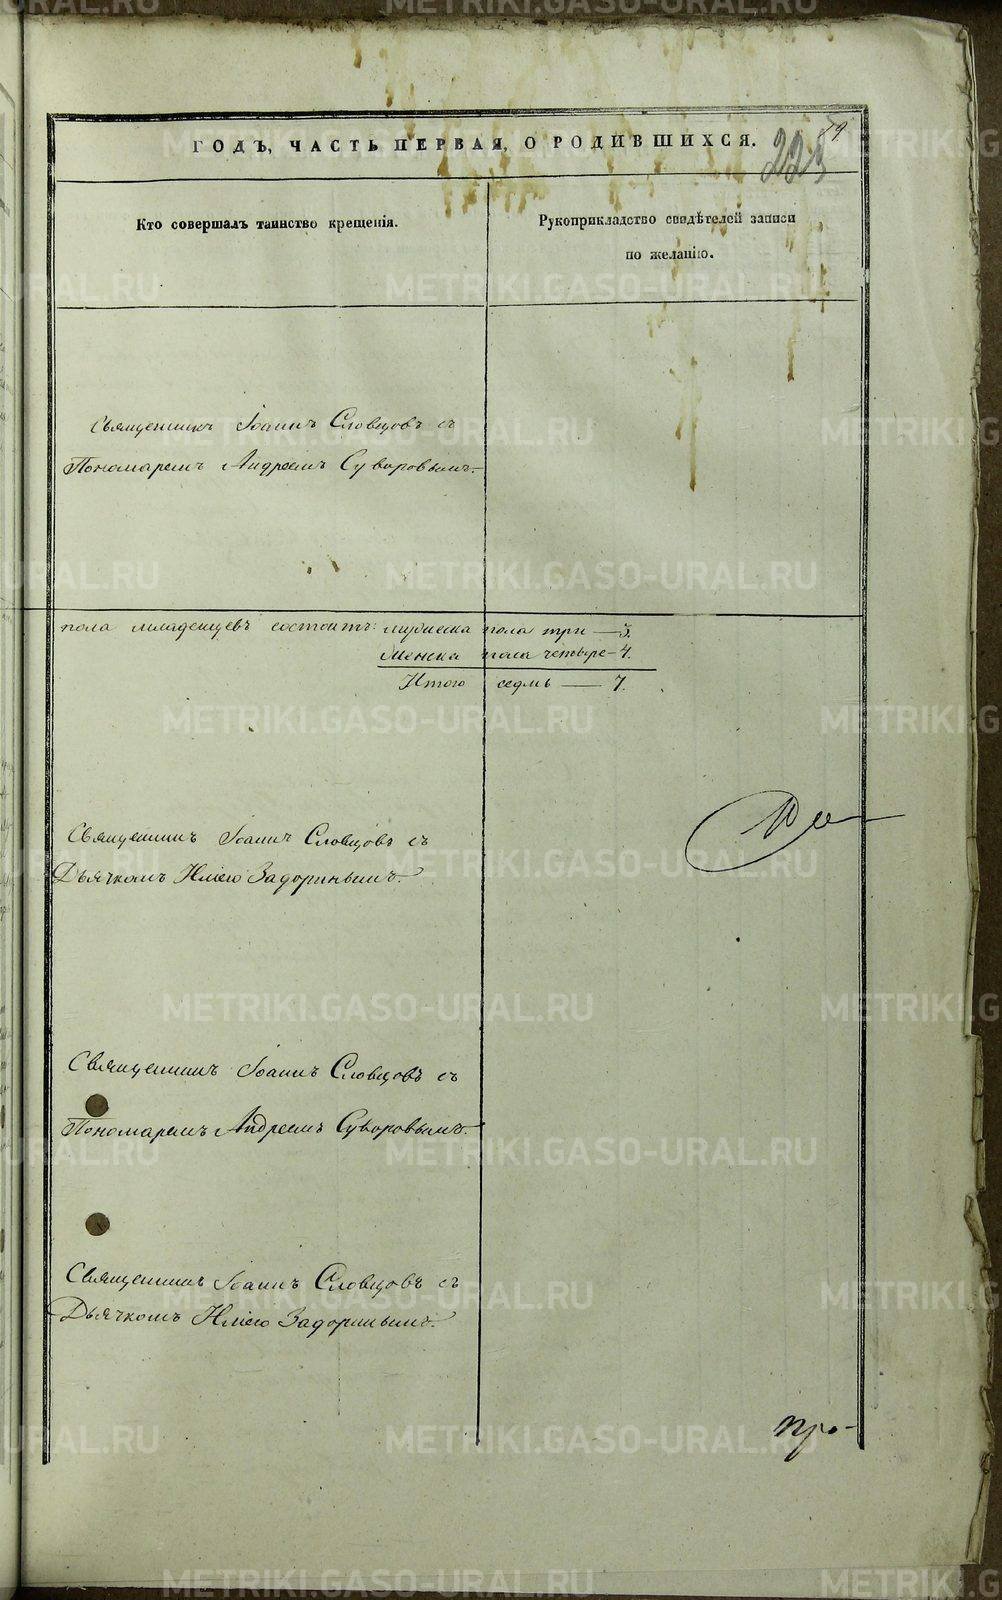 ГОДЪ, ЧАСТЬ ПЕРВАЯ, О РОДИВШИХСЯ.
223
Кто совершалъ таинство крещенія.
Рукоприкладство свидѣтелей записи
по желанію.
Священникъ Іоаннъ Словцовъ съ
Пономаремъ Андреемъ Суворовымъ.
пола младенцевъ состоитъ: мужеска пола три — 3.
женска пола четыре — 4.
Итого седмь — 7.
Священникъ Іоаннъ Словцовъ съ
Дьячкомъ Иліею Задоринымъ.
Священникъ Іоаннъ Словцовъ съ
Пономаремъ Андреемъ Суворовымъ.
Священникъ Іоаннъ Словцовъ съ
Дьячкомъ Иліею Задоринымъ.
METRIKI.GASO-URAL.RU